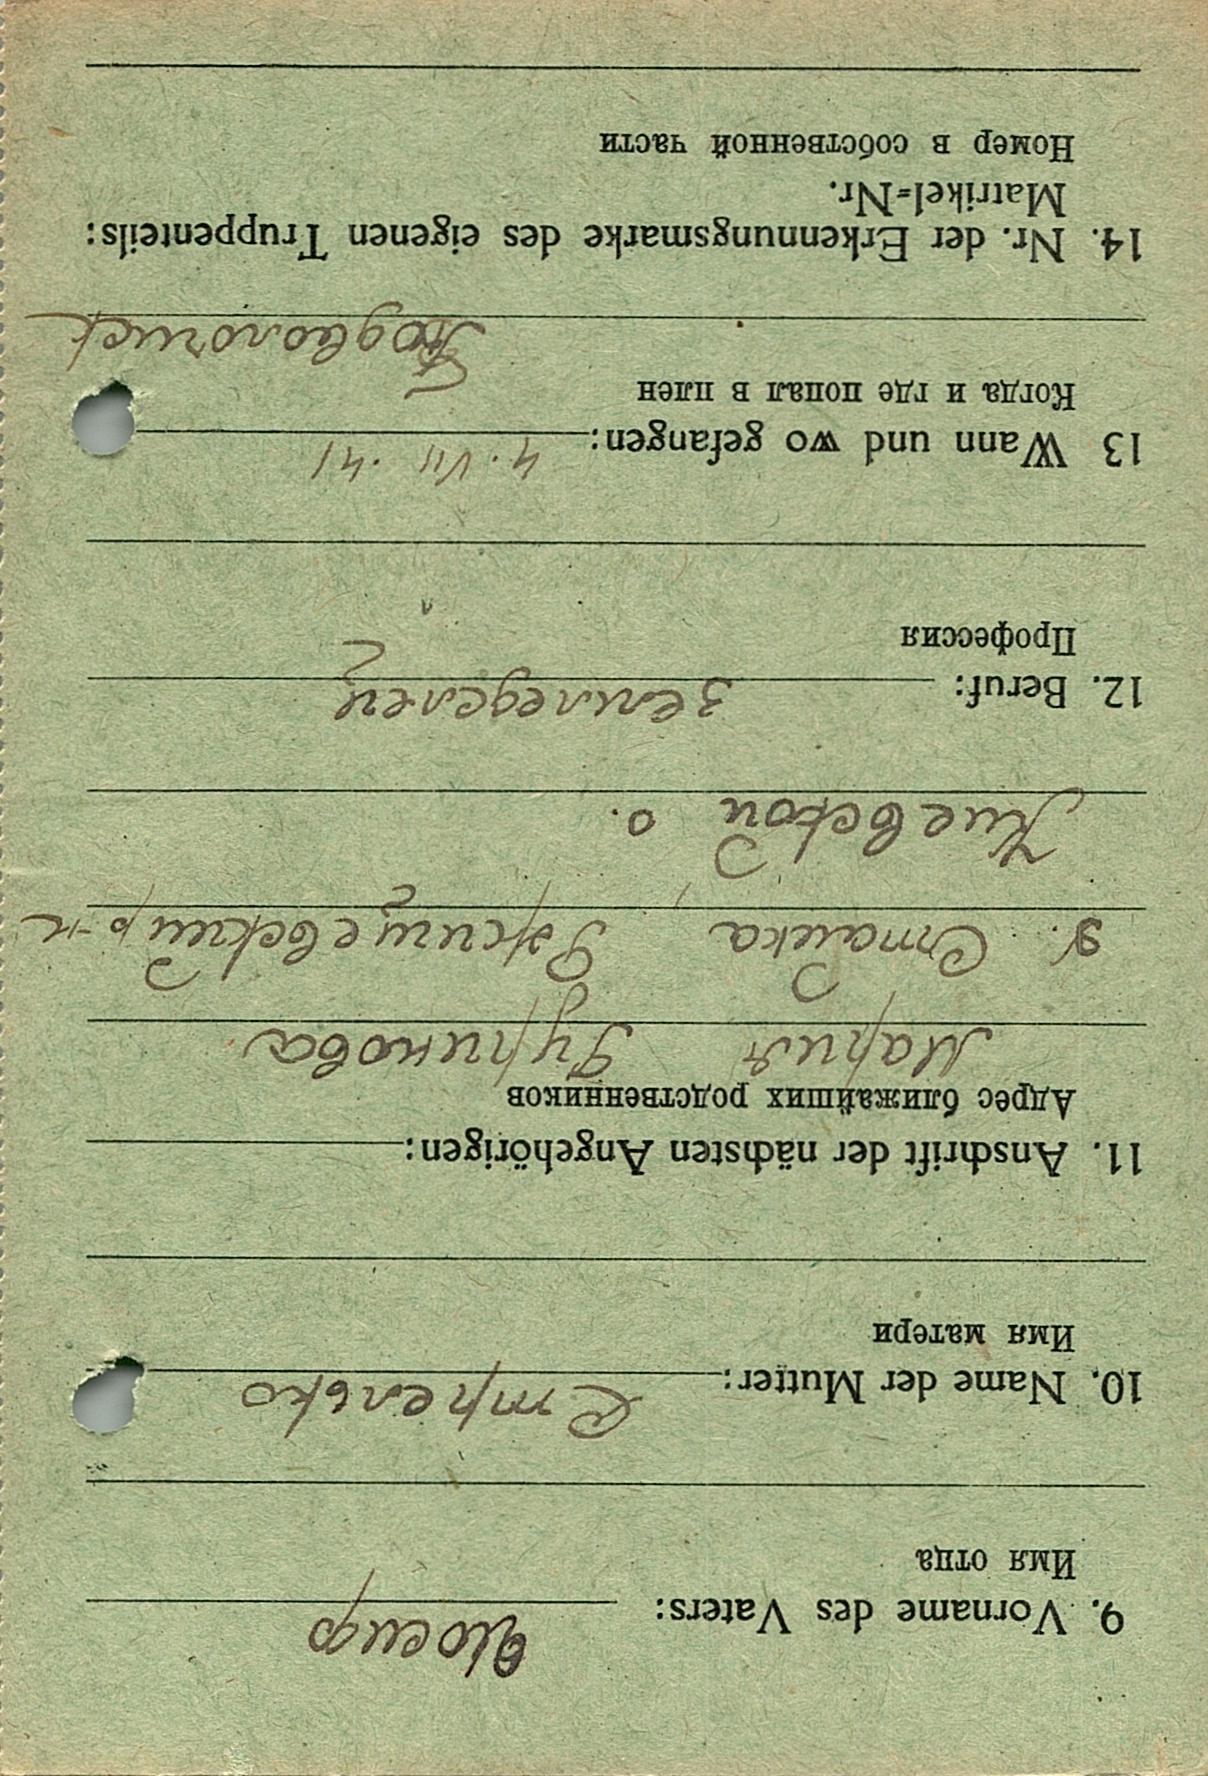 9. Vorname des Vaters: Иосиф
Имя отца
10. Name der Mutter: Стрелько
Имя матери
11. Anschrift der nächsten Angehörigen:
Адрес ближайших родственников
Мария Гуринова
д. Стайка, Ржищевский р-н
Киевской о.
12. Beruf: Земледелец
Профессия
13 Wann und wo gefangen: 4. VII. 41
Когда и где попал в плен
Подволочиск
14. Nr. der Erkennungsmarke des eigenen Truppenteils:
Matrikel=Nr.
Номер в собственной части